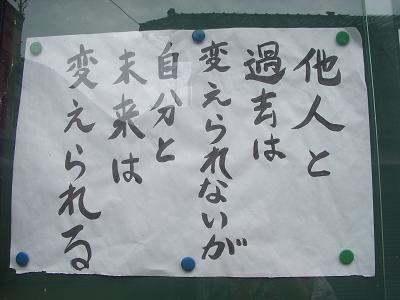 他人と
過去は
変えられないが
自分と
未来は
変えられる